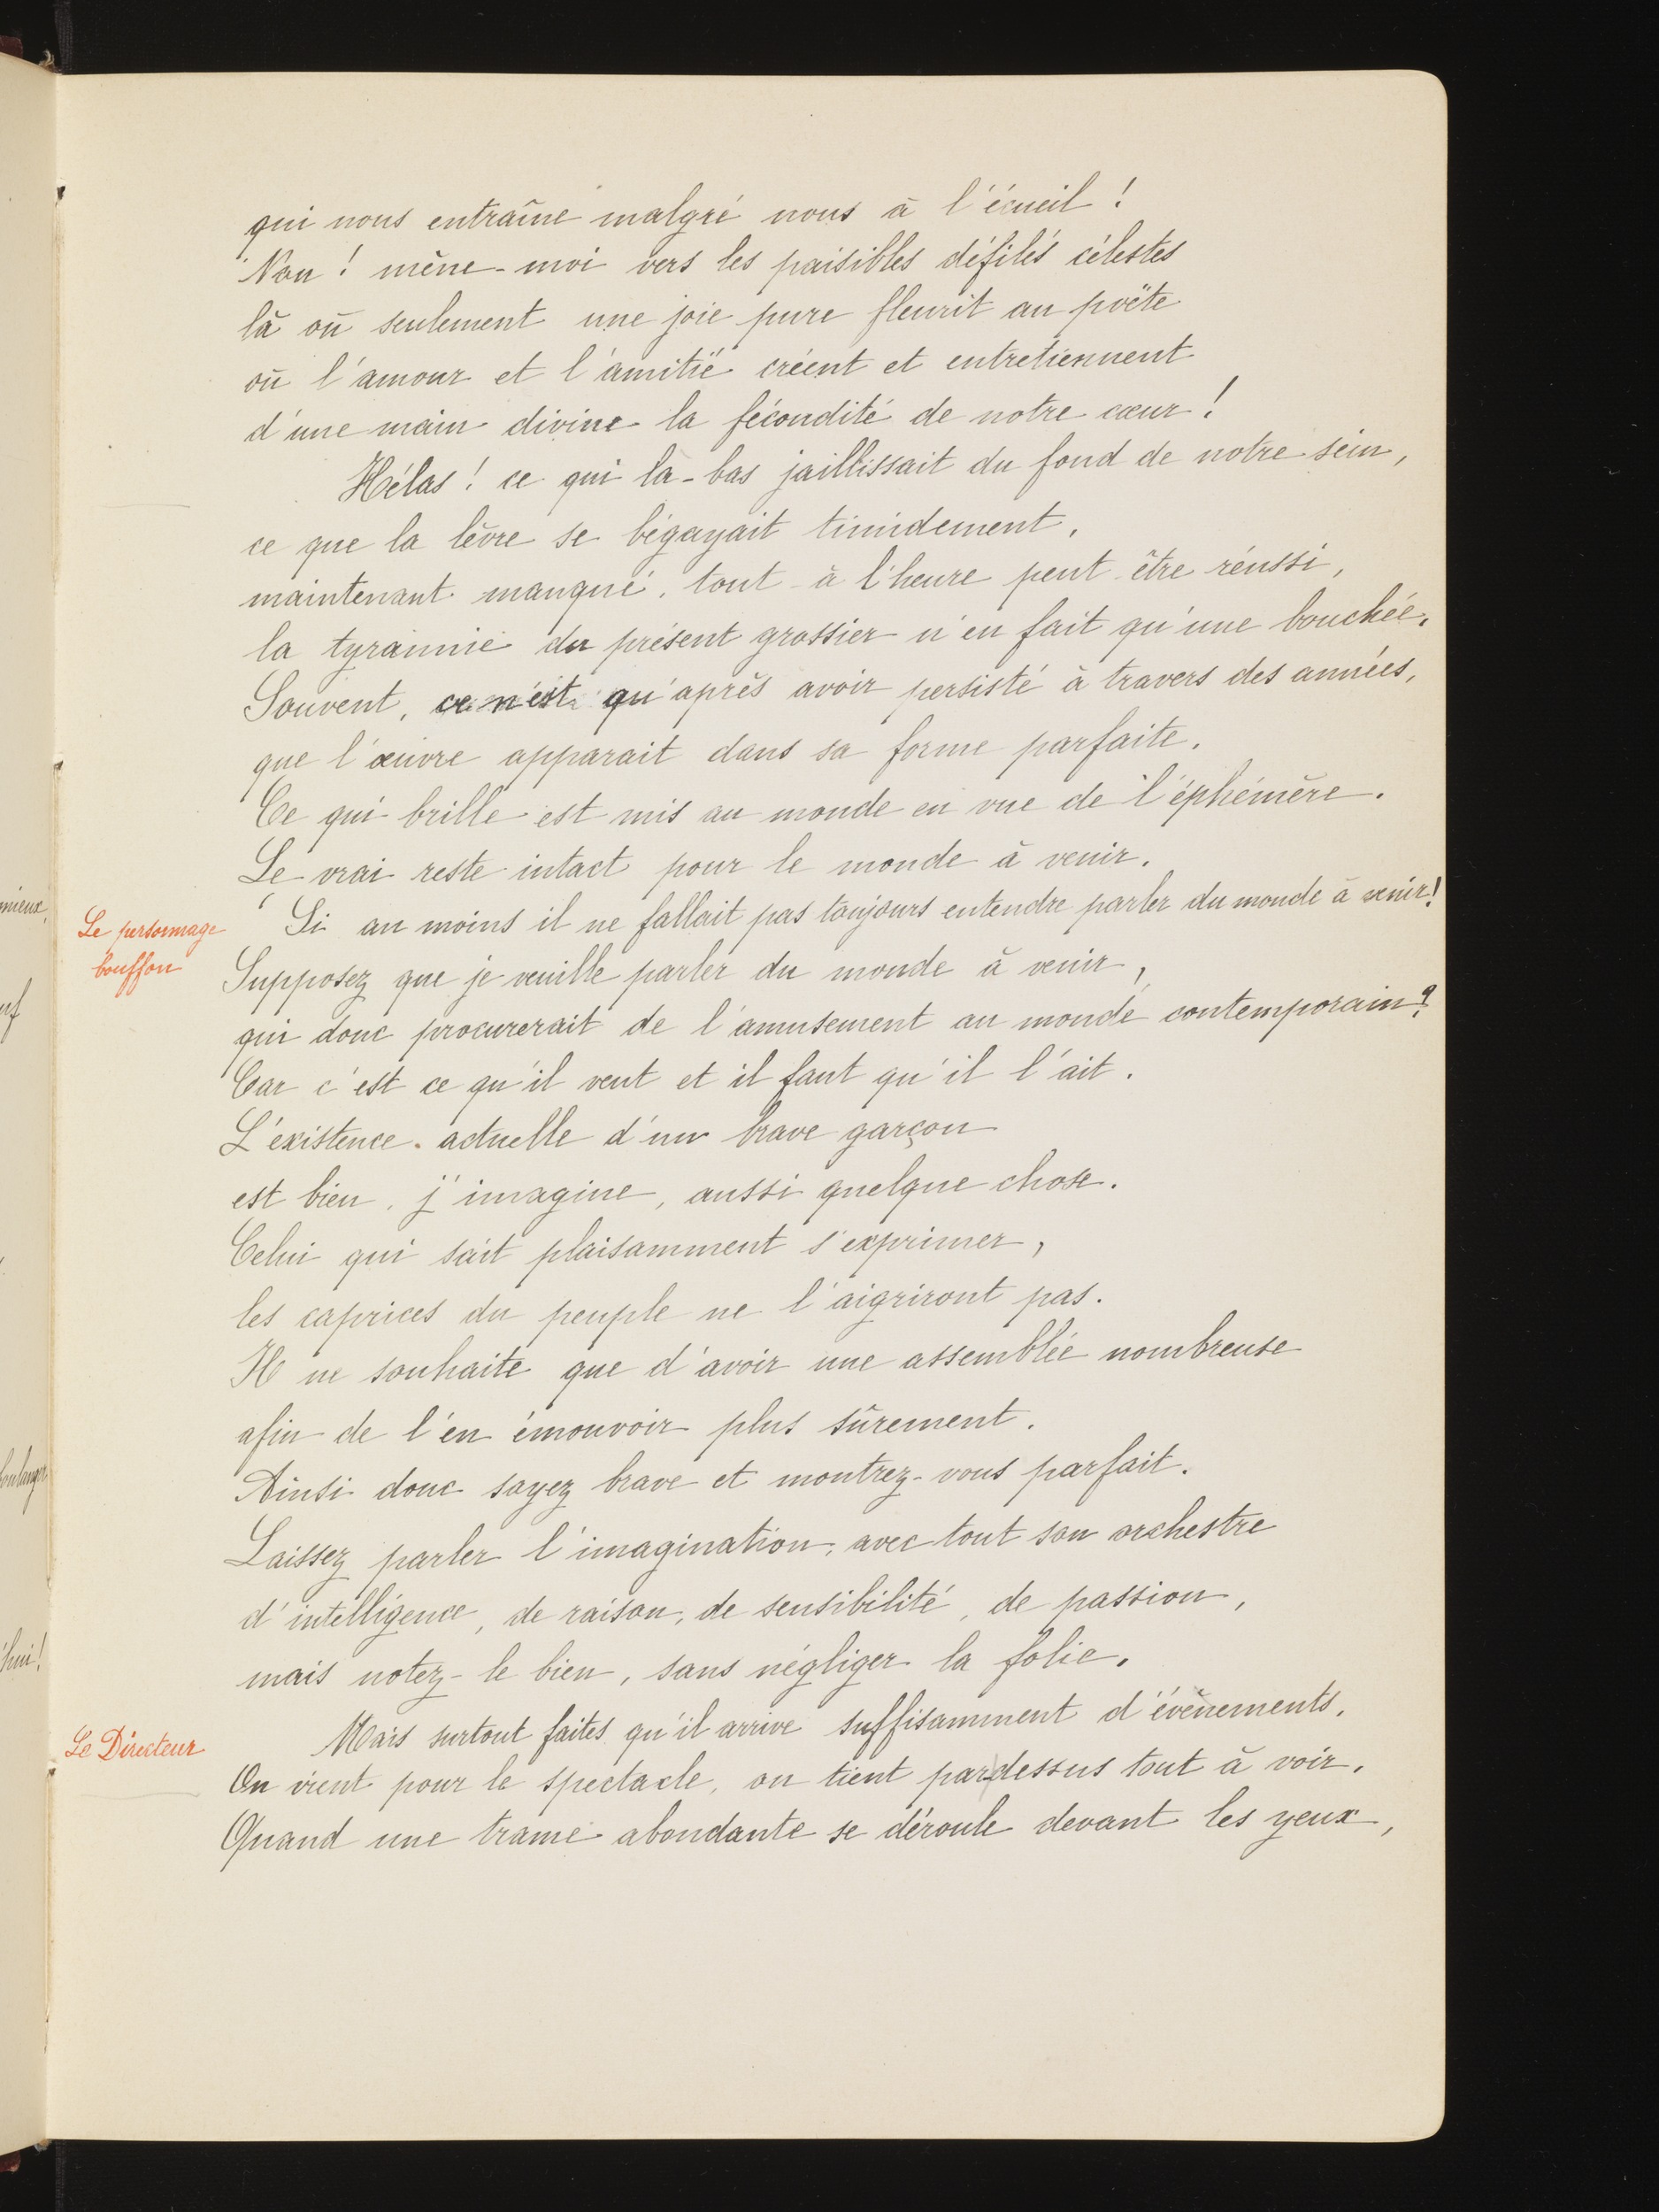 qui nous entraîne malgré nous à l'écueil !
Non ! mène-moi vers les paisibles défilés célestes
là où seulement une joie pure fleurit au poëte
où l'amour et l'amitié créent et entretiennent
d'une main divine la fécondité de notre cœur !
Hélas ! ce qui là-bas jaillissait du fond de notre sein,
ce que la lèvre se bégayait timidement,
maintenant manqué, tout à l'heure peut être réussi,
la tyrannie du présent grossier n'en fait qu'une bouchée.
Souvent, ce n'est qu'après avoir persisté à travers des années,
que l'œuvre apparait dans sa forme parfaite.
Ce qui brille est mis au monde en vue de l'éphémère.
Le vrai reste intact pour le monde à venir.
Le personnage
bouffon
Si au moins il ne fallait pas toujours entendre parler du monde à venir !
Supposez que je veuille parler du monde à venir,
qui donc procurerait de l'amusement au monde contemporain ?
Car c'est ce qu'il veut et il faut qu'il l'ait.
L'existence actuelle d'un brave garçon
est bien, j'imagine, aussi quelque chose.
Celui qui sait plaisamment s'exprimer,
les caprices du peuple ne l'aigriront pas.
Il ne souhaite que d'avoir une assemblée nombreuse
afin de l'en émouvoir plus sûrement.
Ainsi donc soyez brave et montrez-vous parfait.
Laissez parler l'imagination, avec tout son orchestre
d'intelligence, de raison, de sensibilité, de passion,
mais notez-le bien, sans négliger la folie.
Le Directeur
Mais surtout faites qu'il arrive suffisamment d'évènements.
On vient pour le spectacle, on tient pardessus tout à voir.
Quand une trame abondante se déroule devant les yeux,
mieux,
boulanger